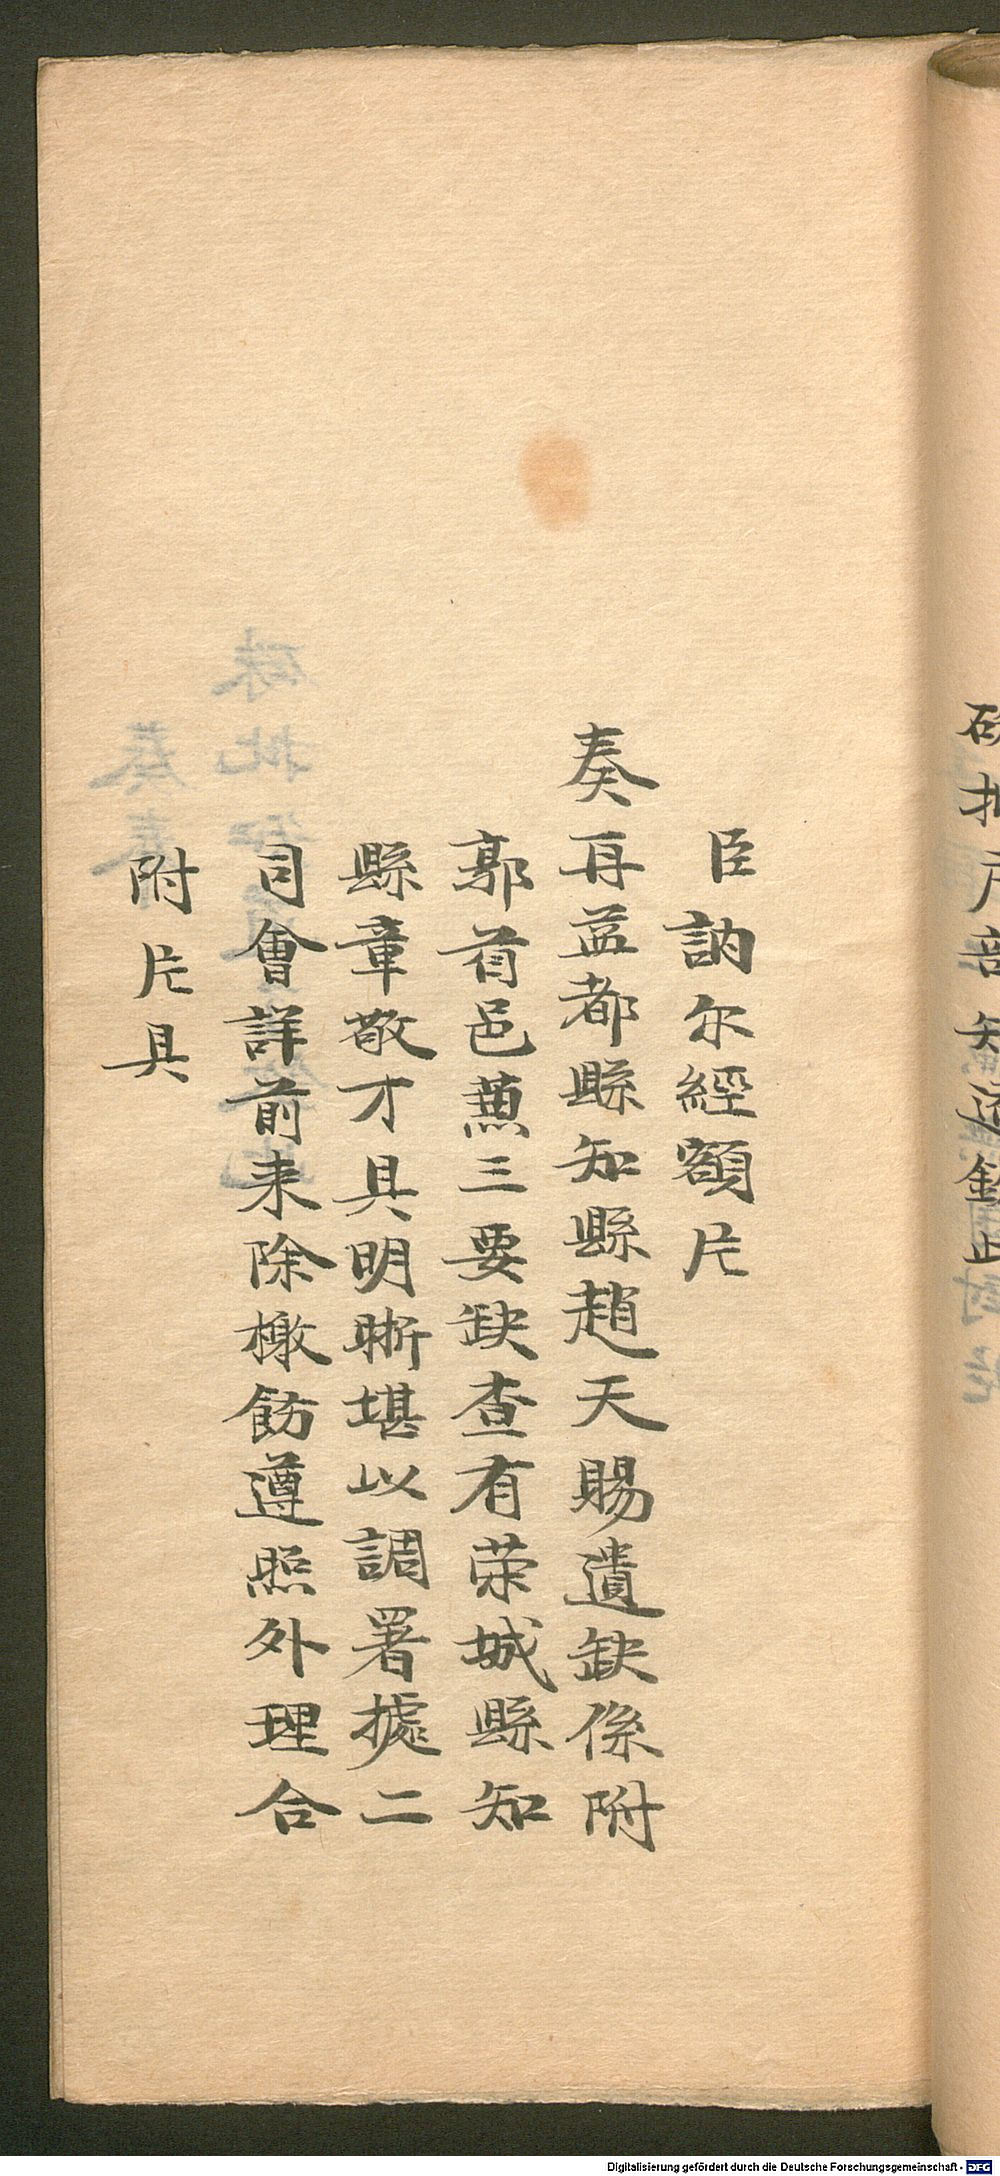 硃批戶部知道欽此
臣訥尔經額片
奏再益都縣知縣趙天賜遺缺係附
郭首邑蕙三要缺查有荣城縣知
縣章敬才具明晰堪以調署據二
司會詳前来除檄飭遵照外理合
附片具
Digitalisierung gefördert durch die Deutsche Forschungsgemeinschaft - DFG